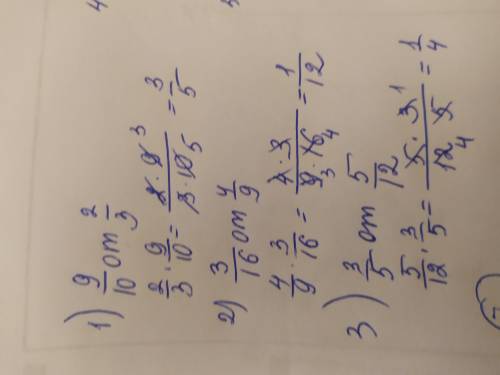 1) 9/10 от 2/3
2/3 · 9/10 = 2·9 3/3·10 5 = 3/5
2) 3/16 от 4/9
4/9 · 3/16 = 4·3/9 3·16 4 = 1/12
3) 3/5 от 5/12
5/12 · 3/5 = 5·3 1/12 4 5 = 1/4